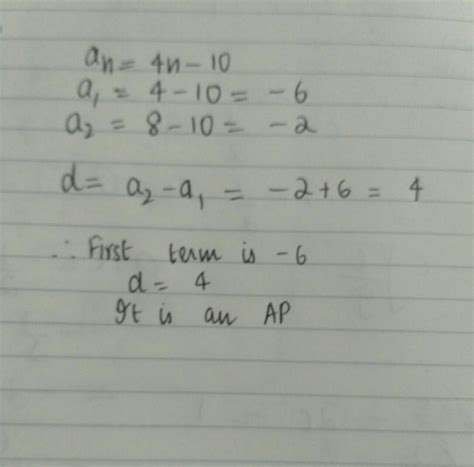 aₙ = 4n - 10
a₁ = 4 - 10 = -6
a₂ = 8 - 10 = -2
d = a₂ - a₁ = -2 + 6 = 4
∴ First term is -6
d = 4
It is an AP